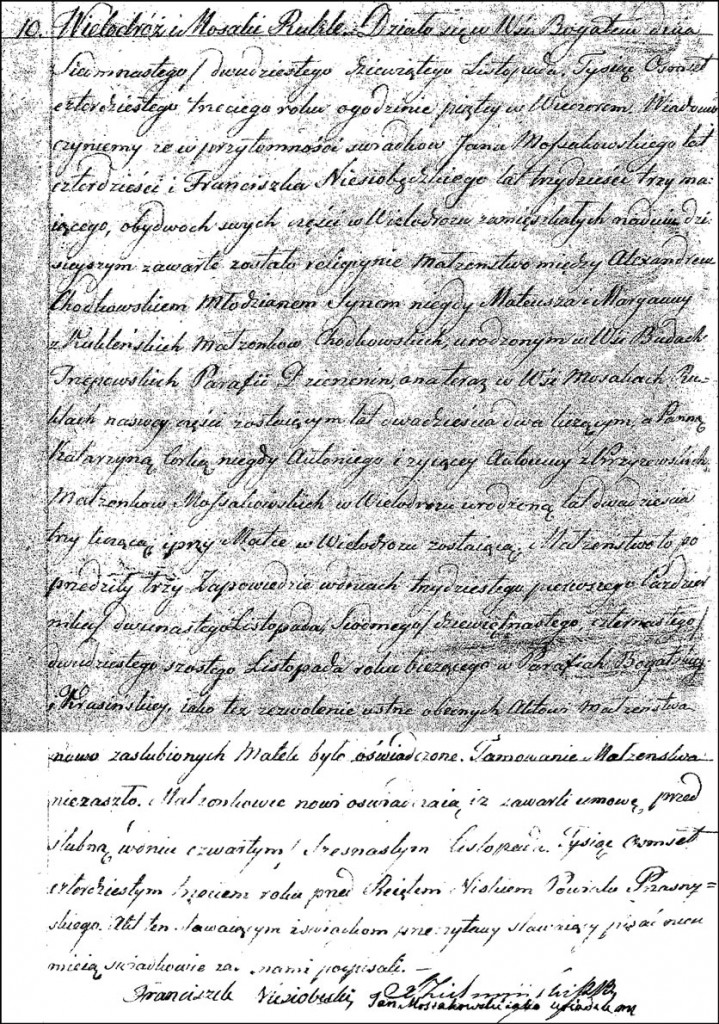 10. Wielodróż i Mosaki Rukle. Działo się w Wsi Bogatem dnia
Siedmnastego/ dwudziestego dziewiątego Listopada, Tysiąc Ośmset
czterdziestego trzeciego roku o godzinie piątey w Wieczorem. Wiadomo
czyniemy że w przytomności świadków Jana Mossakowskiego lat
czterdzieści i Franciszka Niesiobędzkiego lat trzydzieści trzy ma-
iącego, obydwoch swych części w Wielodrozu zamięszkałych na dniu dzi
sieyszym zawarte zostało religijnie Małżeństwo między Alexandrem
Chodkowskiem Młodzianem Synem niegdy Mateusza i Maryanny
z Małżonkow Chodkowskich, urodzonym w Wsi Budach
Parafii a teraz w Wsi Mosakach Ru-
klach na swey części zostaiącym lat dwadzieścia dwa liczącym, a Panną
Katarzyną Corką niegdy Antoniego i żyiącey Antoniny z
Małżonkow Mossakowskich w Wielodrozu urodzoną lat dwadzieścia
trzy liczącą, i przy Matce w Wielodrozu zostaiącą. Małżeństwo to po
przedziły trzy Zapowiedzie w dniach trzydziestego pierwszego Paździer
nika/ dwunastego Listopada, Siodmego/ dziewiętnastego, czternastego/
dwudziestego szostego Listopada roku bieżącego w Parafiach
i Krasińskiey, iako też zezwolenie ustne obecnych Aktowi Małżeństwa
nowo zaślubionych Matek było oświadczone. Tamowanie Małżeństwa
niezaszło. Małżonkowie nowi oświadczaią iż zawarli umowę przed
ślubną w dniu czwartym/ szesnastym Listopada Tysiąc Ośmset
czterdziestym trzeciem roku przed Reientem Powiatu Przasny-
skiego. Akt ten stawaiącym i świadkom przeczytany stawaiący pisać nieu
mieią świadkowie za nami podpisali. —
Franciszek Niesiobędzki
Jan Mossakowski iako świadek